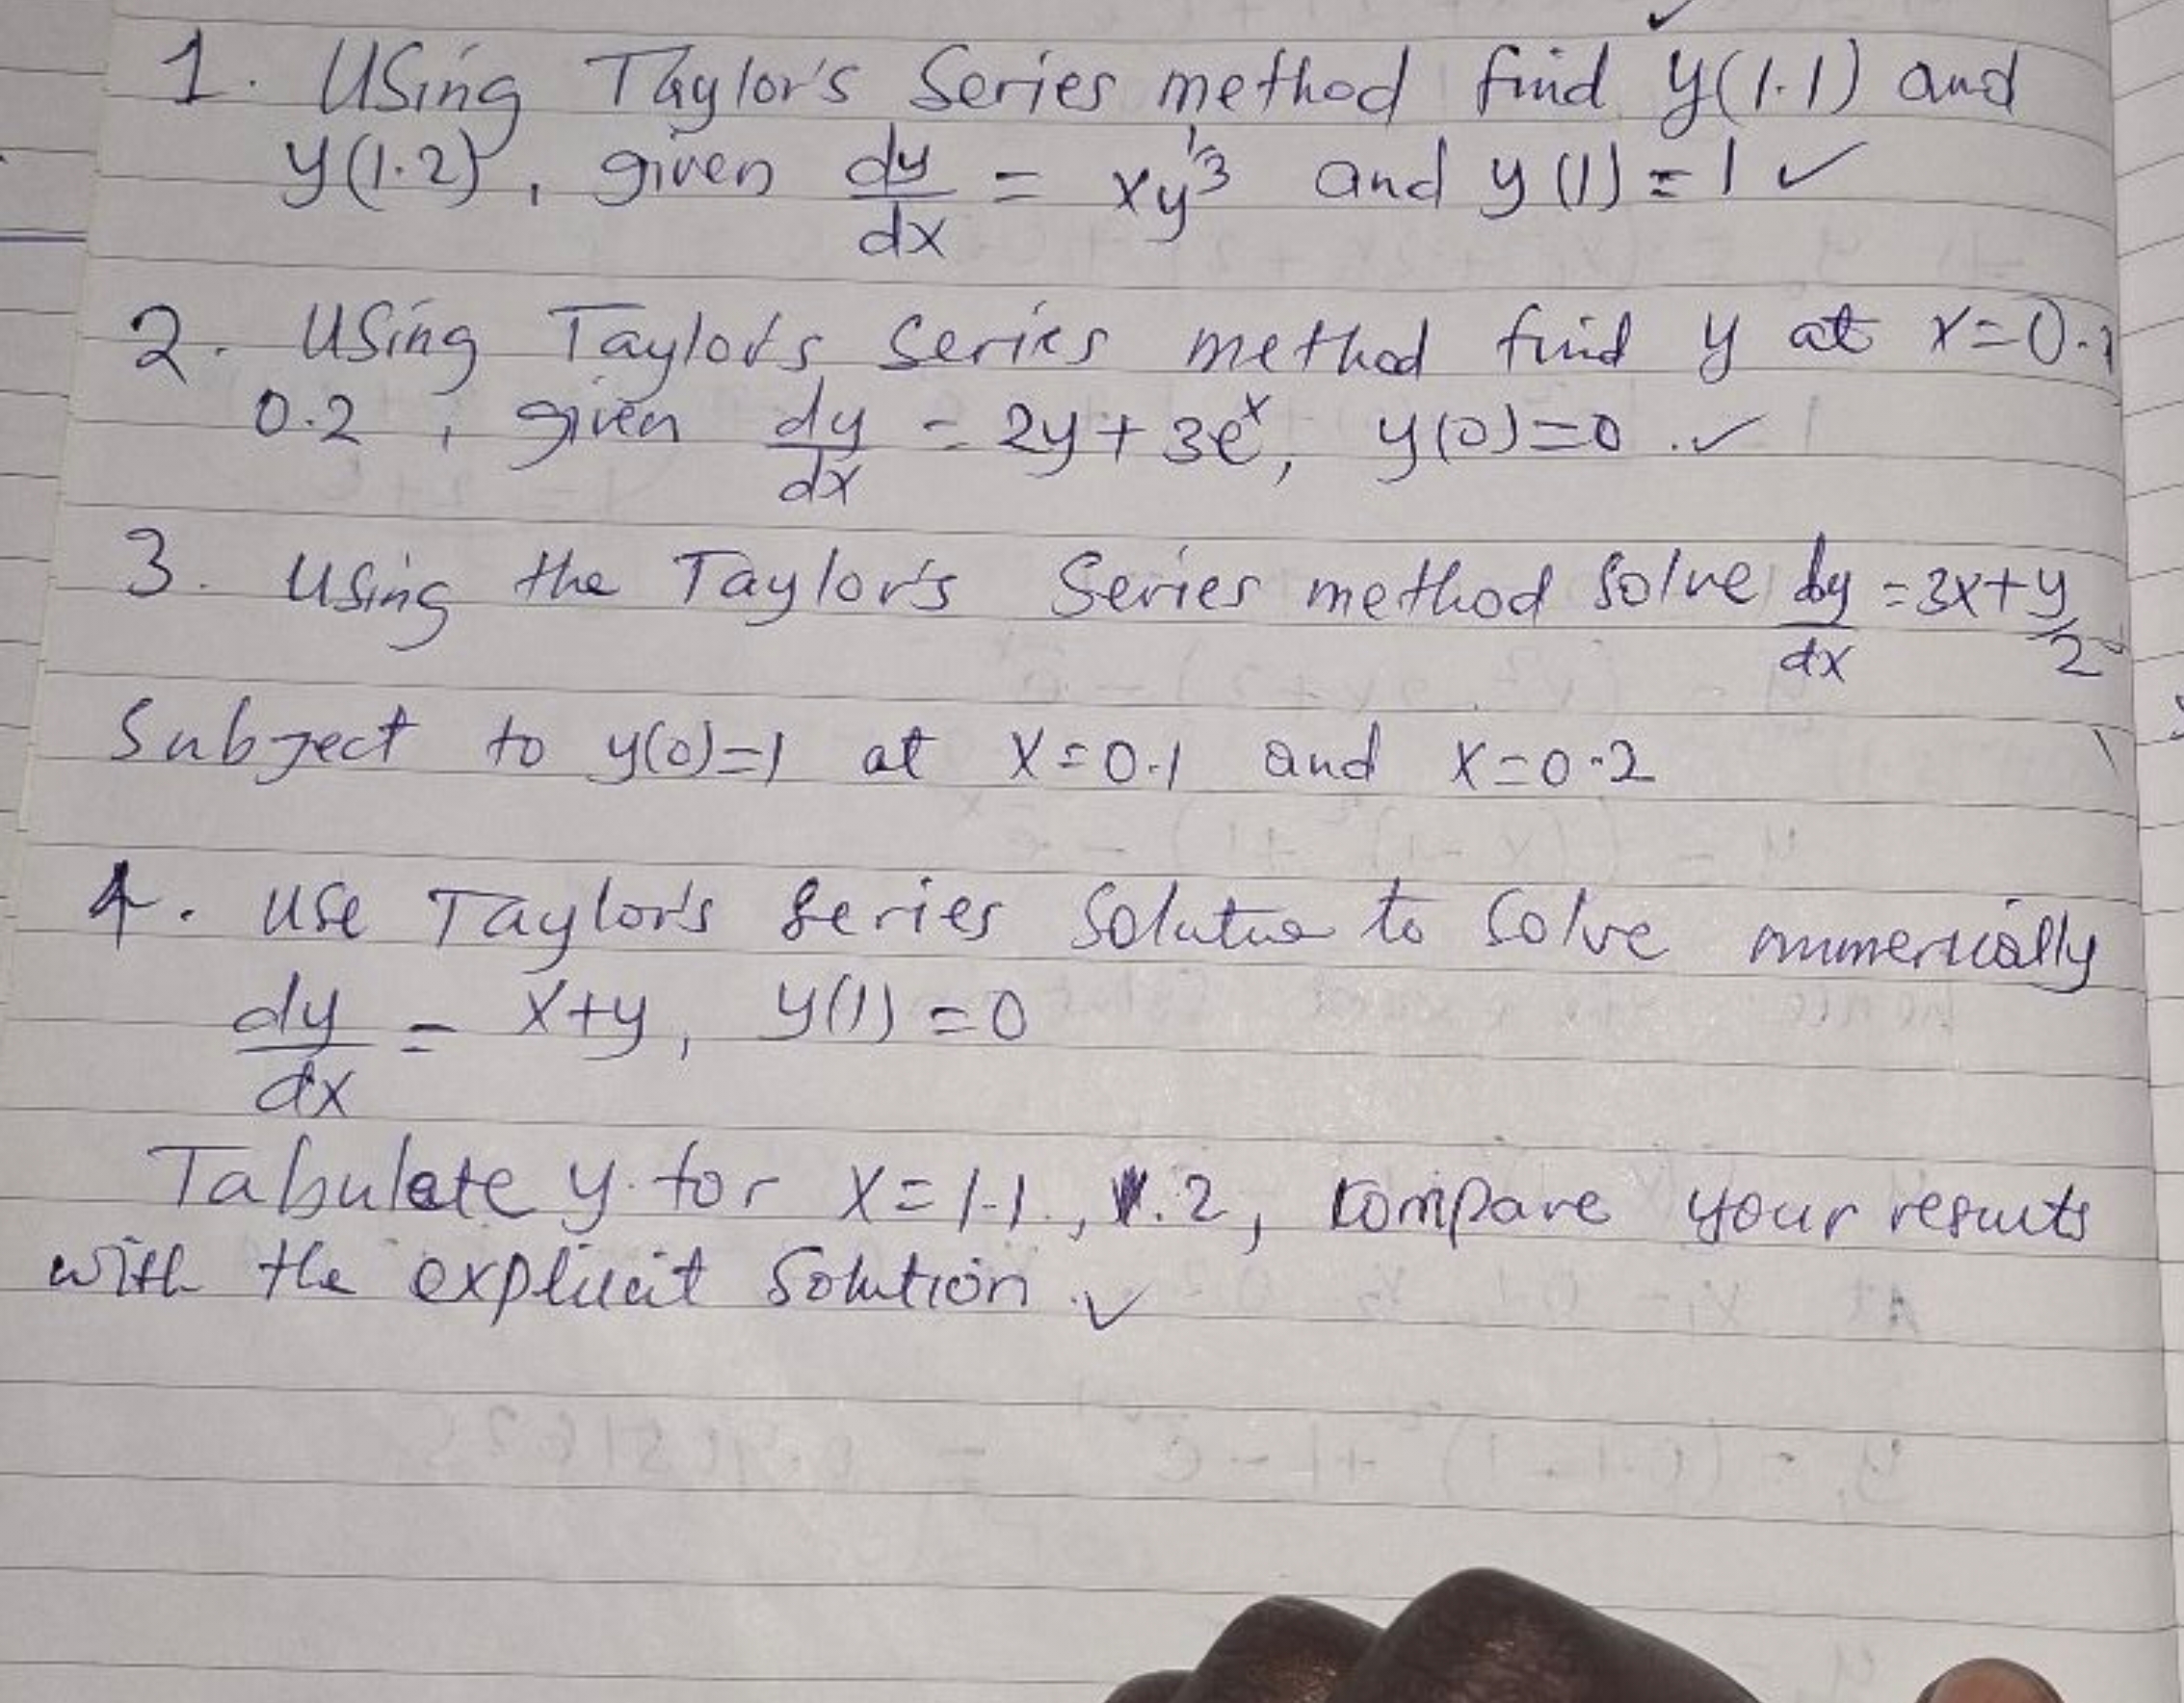 1. Using Taylor's Series method find y(1.1) and
y(1.2), given dy/dx = xy^1/3 and y(1)=1 ✓
2. Using Taylor's Series method find y at x=0.1
0.2, given dy/dx = 2y+3e^x, y(0)=0. ✓
3. Using the Taylor's Series method solve dy/dx = 3x+y/2
Subject to y(0)=1 at x=0.1 and x=0.2
4. Use Taylor's series Solution to solve numerically
dy/dx = x+y, y(1)=0
Tabulate y for x=1.1, 1.2, compare your results
with the explicit Solution. ✓